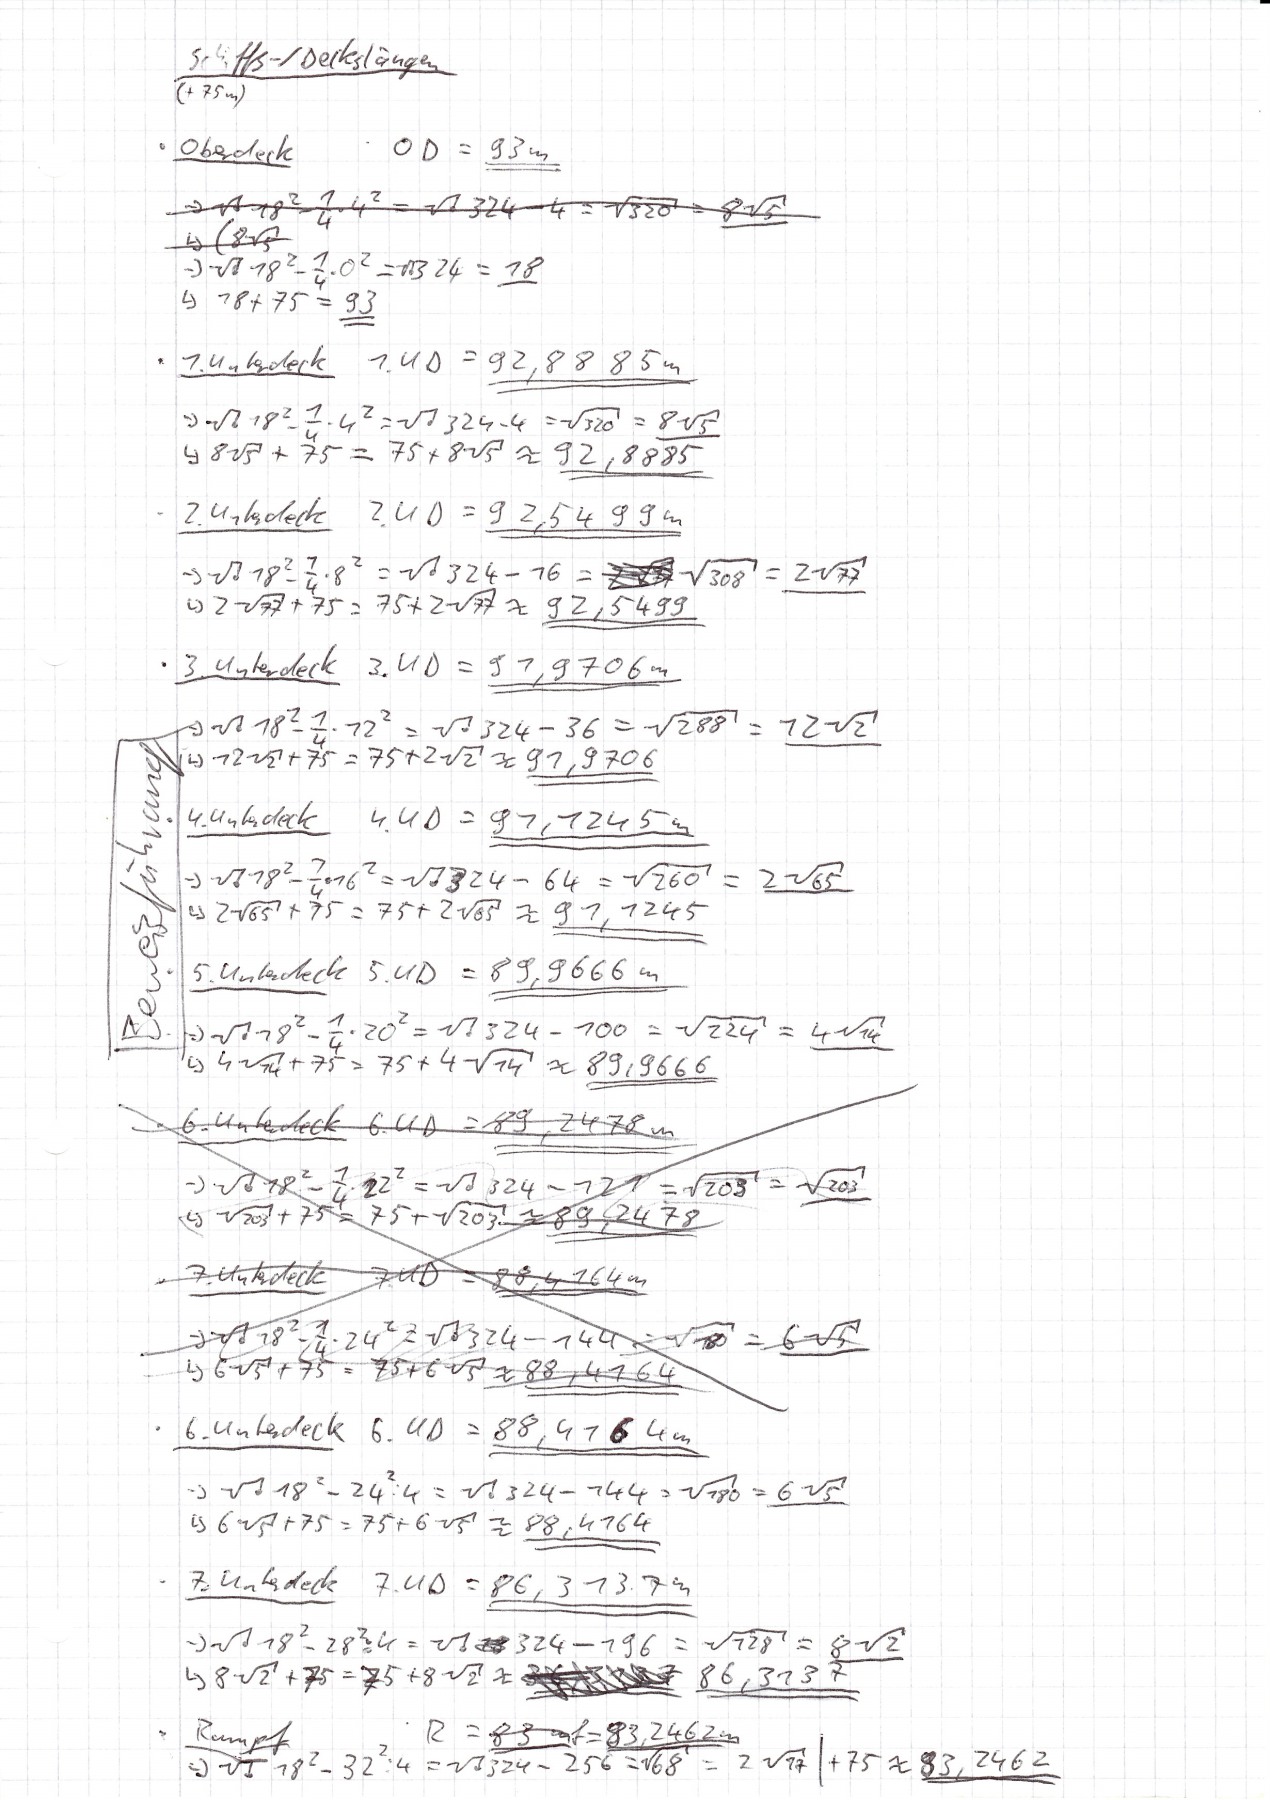 Schiffs-/Deckslängen
(+ 75m)
· Oberdeck · OD = 93m
→ √18² - 1/4 · 4² = √324 - 4 = √320 = 8√5
↳ (8√5
→ √18² - 1/4 · 0² = √324 = 18
↳ 18 + 75 = 93
· 1. Unterdeck 1. UD = 92,8885m
→ √18² - 1/4 · 4² = √324 - 4 = √320 = 8√5
↳ 8√5 + 75 = 75 + 8√5 ≈ 92,8885
· 2. Unterdeck 2. UD = 92,5499m
→ √18² - 1/4 · 8² = √324 - 16 = √308 = 2√77
↳ 2√77 + 75 = 75 + 2√77 ≈ 92,5499
· 3. Unterdeck 3. UD = 91,9706m
→ √18² - 1/4 · 12² = √324 - 36 = √288 = 12√2
↳ 12√2 + 75 = 75 + 2√2 ≈ 91,9706
Beweisführung
4. Unterdeck 4. UD = 91,1245m
→ √18² - 1/4 · 16² = √324 - 64 = √260 = 2√65
↳ 2√65 + 75 = 75 + 2√65 ≈ 91,1245
· 5. Unterdeck 5. UD = 89,9666m
→ √18² - 1/4 · 20² = √324 - 100 = √224 = 4√14
↳ 4√14 + 75 = 75 + 4√14 ≈ 89,9666
· 6. Unterdeck 6. UD = 89,2478m
→ √18² - 1/4 · 22² = √324 - 121 = √203 = √203
↳ √203 + 75 = 75 + √203 ≈ 89,2478
· 7. Unterdeck 7. UD = 88,4164m
→ √18² - 1/4 · 24² = √324 - 144 = √180 = 6√5
↳ 6√5 + 75 = 75 + 6√5 ≈ 88,4164
· 6. Unterdeck 6. UD = 88,4164m
→ √18² - 24² : 4 = √324 - 144 = √180 = 6√5
↳ 6√5 + 75 = 75 + 6√5 ≈ 88,4164
· 7. Unterdeck 7. UD = 86,3137m
→ √18² - 28² : 4 = √324 - 196 = √128 = 8√2
↳ 8√2 + 75 = 75 + 8√2 ≈ 86,3137
· Rumpf · R = 83 m = 83,2462m
→ √18² - 32² : 4 = √324 - 256 = √68 = 2√17 | + 75 ≈ 83,2462